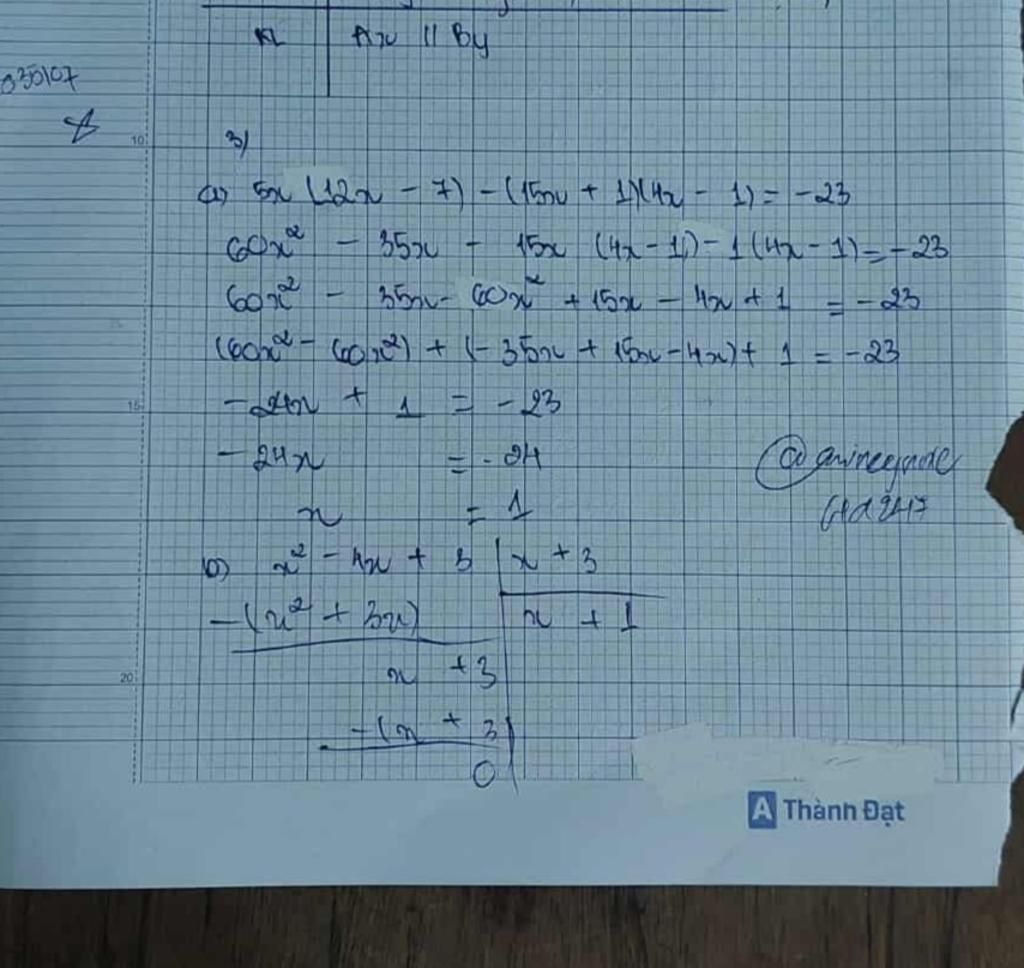 KL Ax // By
10
3)
a) 5x (12x - 7) - (15x + 1)(4x - 1) = -23
60x² - 35x - 15x (4x - 1) - 1 (4x - 1) = -23
60x² - 35x - 60x² + 15x - 4x + 1 = -23
(60x² - 60x²) + (-35x + 15x - 4x) + 1 = -23
15
-24x + 1 = -23
-24x = -24
x = 1
b) x² - 4x + 3 | x + 3
-(x² + 3x) x + 1
20
x + 3
-(x + 3
0
A Thành Đạt